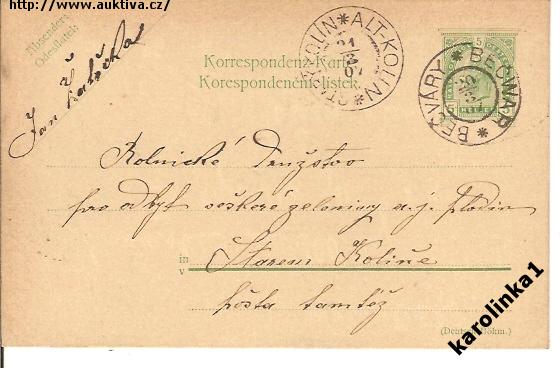 http://www.auktiva.cz
Absender:
Odesílatel:
Korrespondenz-Karte
Korespondenční lístek.
ALT-KOLIN
BEČVÁRY * BEČWAR
5
Jan
Rolnické družstvo
pro odbyt veškeré zeleniny a j. plodin
in
v
Starém Kolíně
pošta tamtéž
(Deutsch-Böhm.)
karolinka1